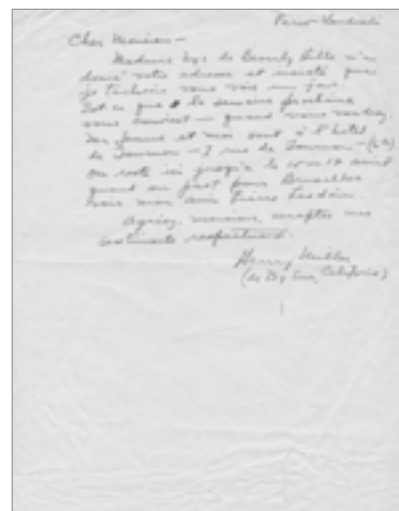 Paris - Vendredi
Cher Monsieur —
Madame de Beverly Hills m'a
donné votre adresse et insisté que
je vous vois un jour.
Est-ce que la semaine prochaine
vous convient — quand vous voudrez.
Ma femme et moi sont à l'hotel
de Tournon — 7 rue de Tournon — (6e)
On reste ici jusqu'à le 15 ou 17 avril
quand on part pour Bruxelles
voir mon ami Pierre Lesdain.
Agréez, monsieur, acceptez mes
sentiments respectueux.
Henry Miller
(de Big Sur, California)